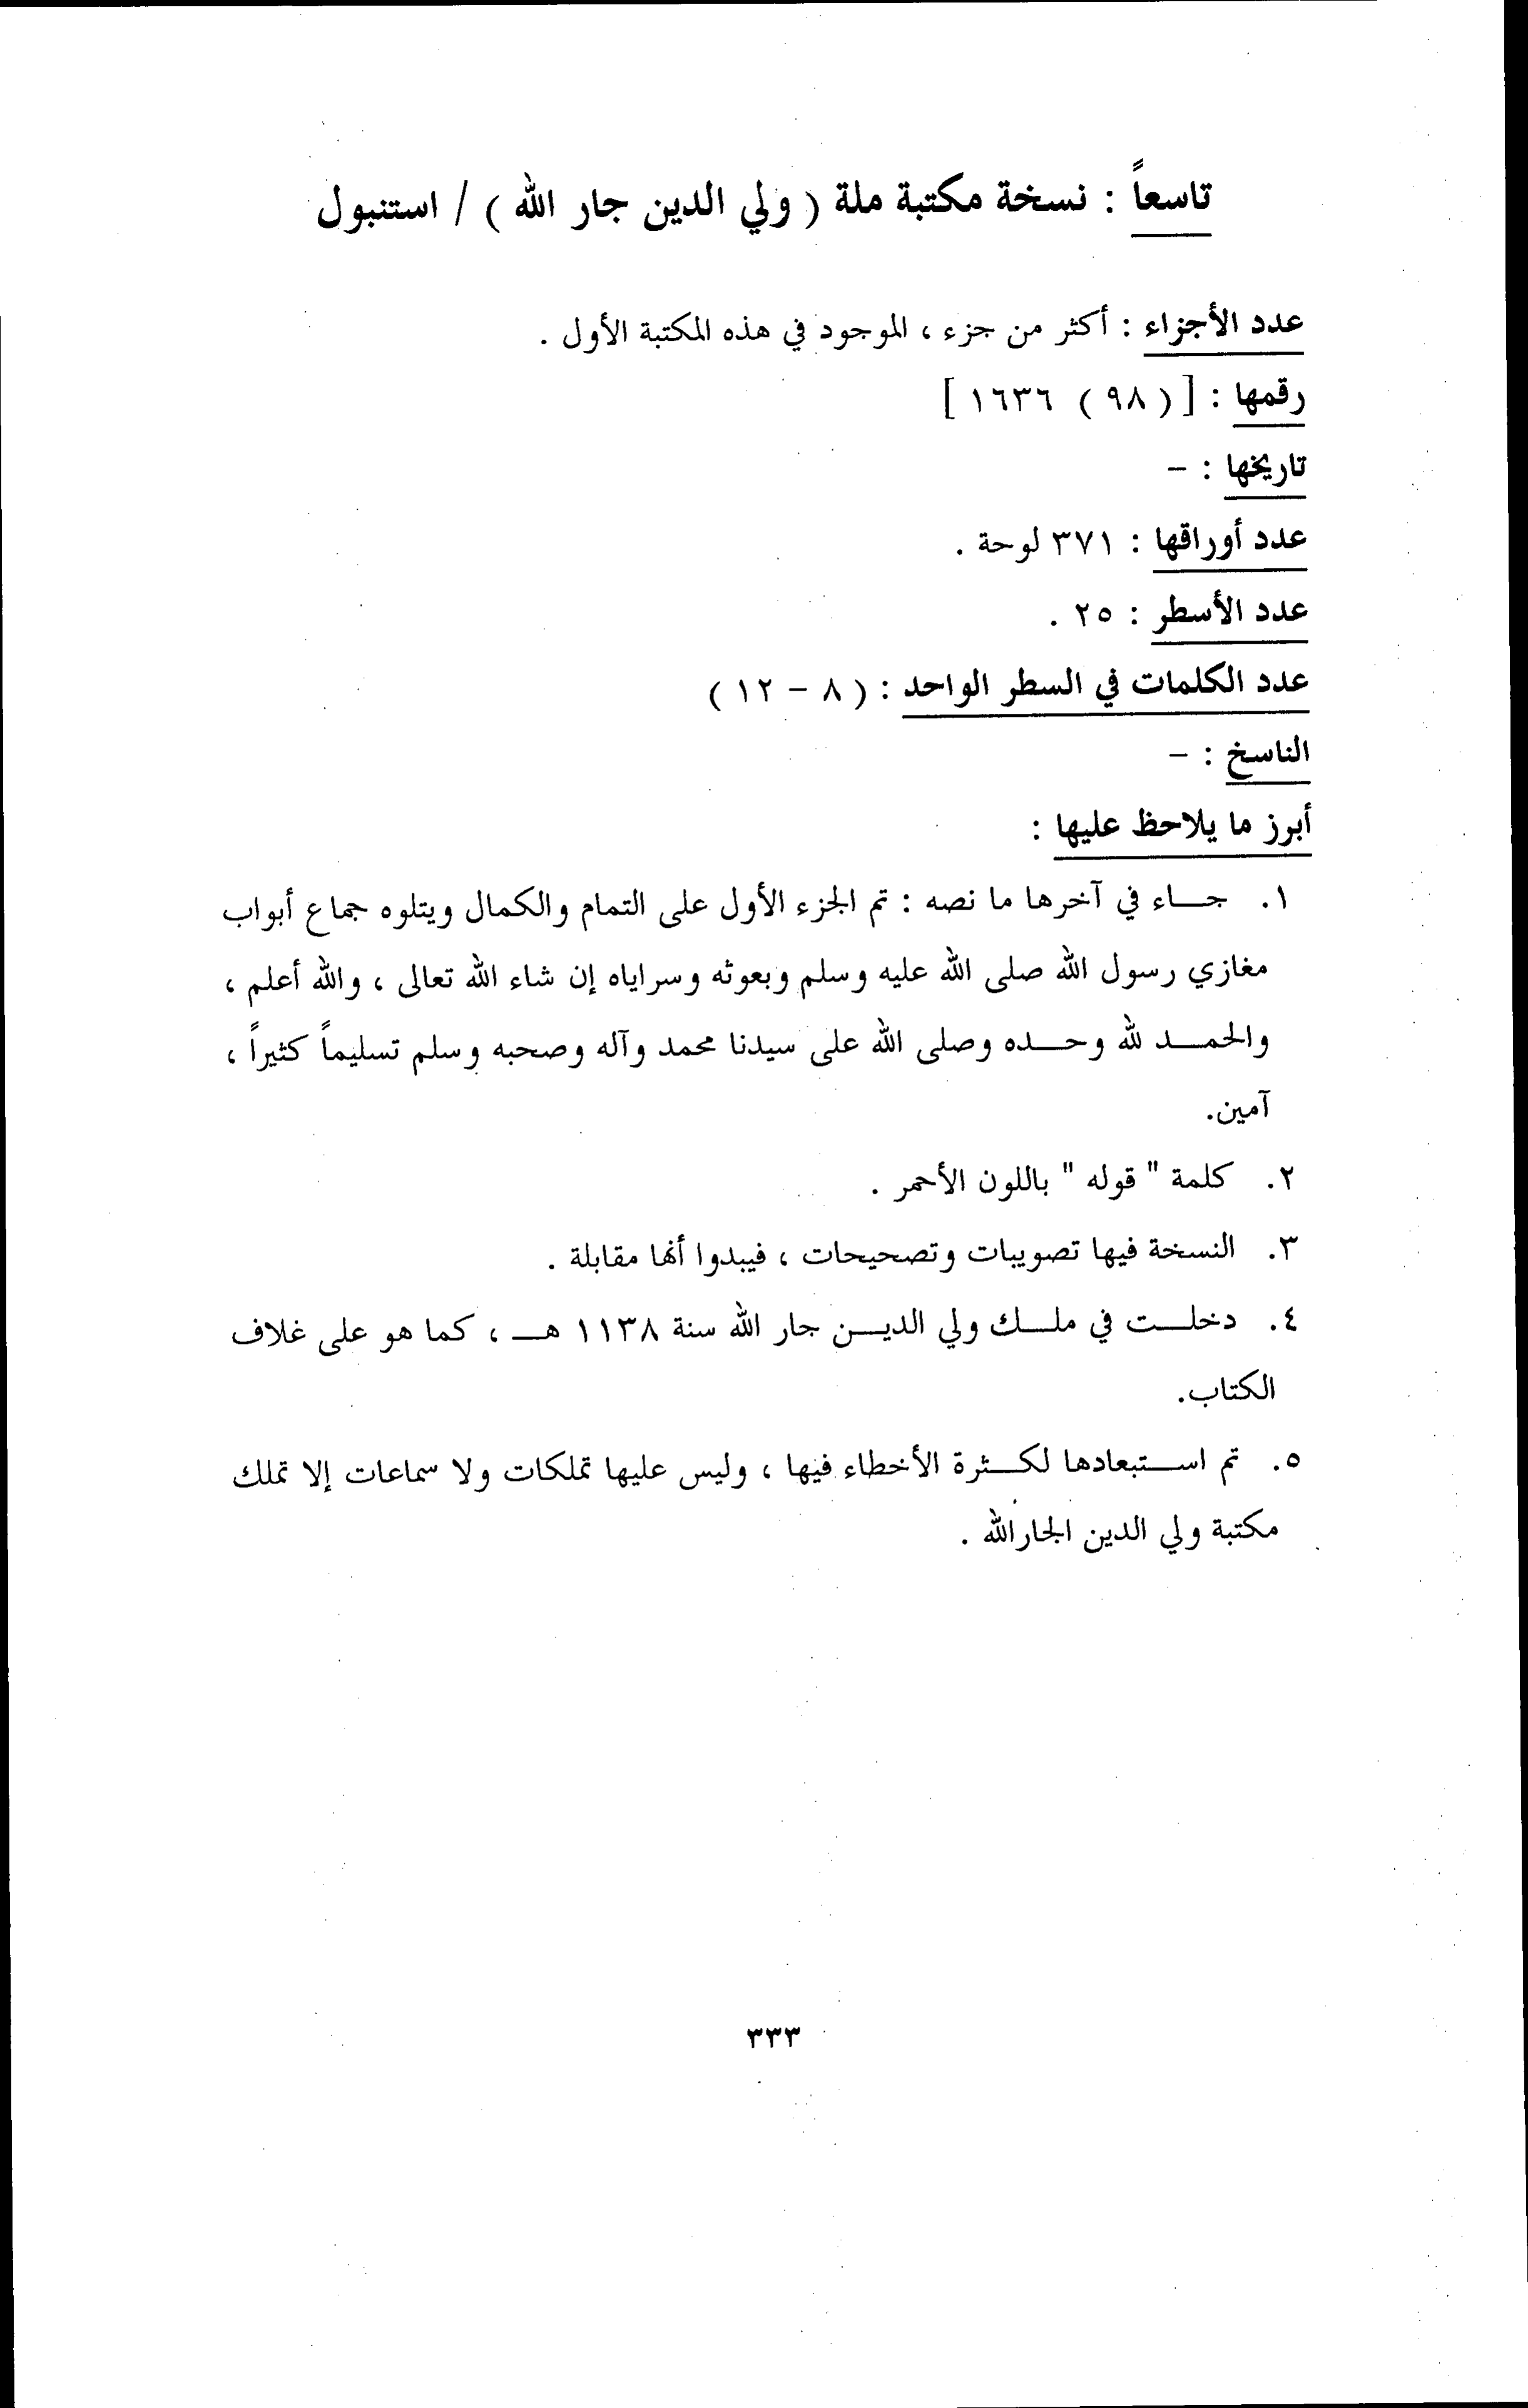 تاسعاً : نسخة مكتبة ملة ( ولي الدين جار الله ) / استنبول
عدد الأجزاء : أكثر من جزء ، الموجود في هذه المكتبة الأول .
رقمها : [ ( ٩٨ ) ١٦٣٦ ]
تاريخها : –
عدد أوراقها : ٣٧١ لوحة .
عدد الأسطر : ٢٥ .
عدد الكلمات في السطر الواحد : ( ٨ – ١٢ )
الناسخ : –
أبرز ما يلاحظ عليها :
١. جـــاء في آخرها ما نصه : تم الجزء الأول على التمام والكمال ويتلوه جماع أبواب
مغازي رسول الله صلى الله عليه وسلم وبعوثه وسراياه إن شاء الله تعالى ، والله أعلم ،
والحمـــد لله وحـــده وصلى الله على سيدنا محمد وآله وصحبه وسلم تسليماً كثيراً ،
آمين.
٢. كلمة " قوله " باللون الأحمر .
٣. النسخة فيها تصويبات وتصحيحات ، فيبدوا أنها مقابلة .
٤. دخلـــت في ملـــك ولي الديـــن جار الله سنة ١١٣٨ هـــ ، كما هو على غلاف
الكتاب.
٥. تم اســـتبعادها لكـــثرة الأخطاء فيها ، وليس عليها تملكات ولا سماعات إلا تملك
مكتبة ولي الدين الجارالله .
٣٣٣